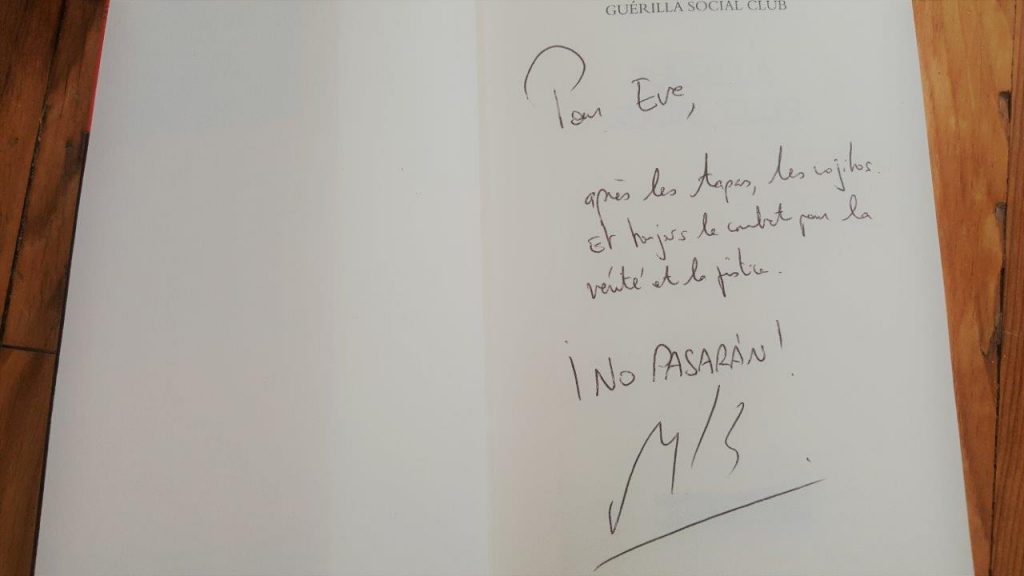 GUÉRILLA SOCIAL CLUB
Pour Eve,
après les tapas, les mojitos.
Et toujours le combat pour la
vérité et la justice.
¡NO PASARÁN!